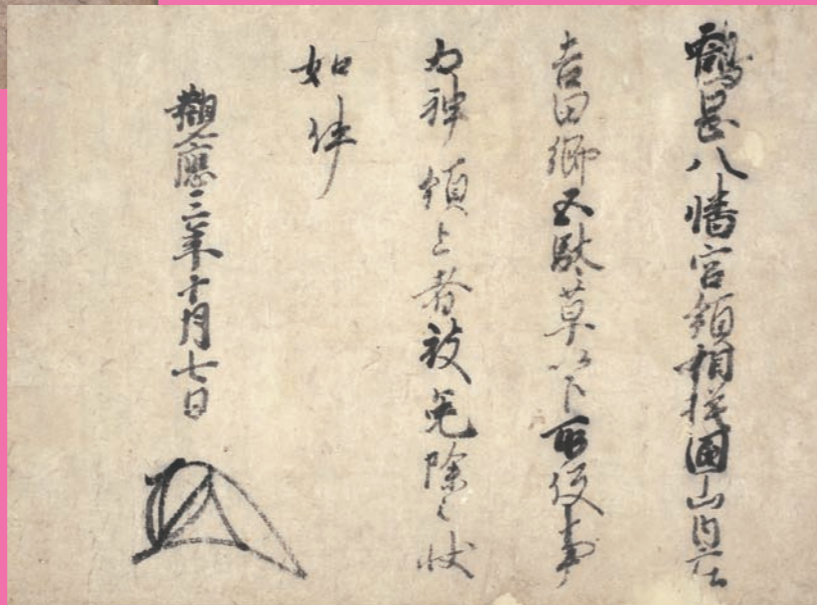 鶴岡八幡宮領相模国山内庄
吉田郷馬草以下所役事
為神領上者被免除之状
如件
観應三年十月七日